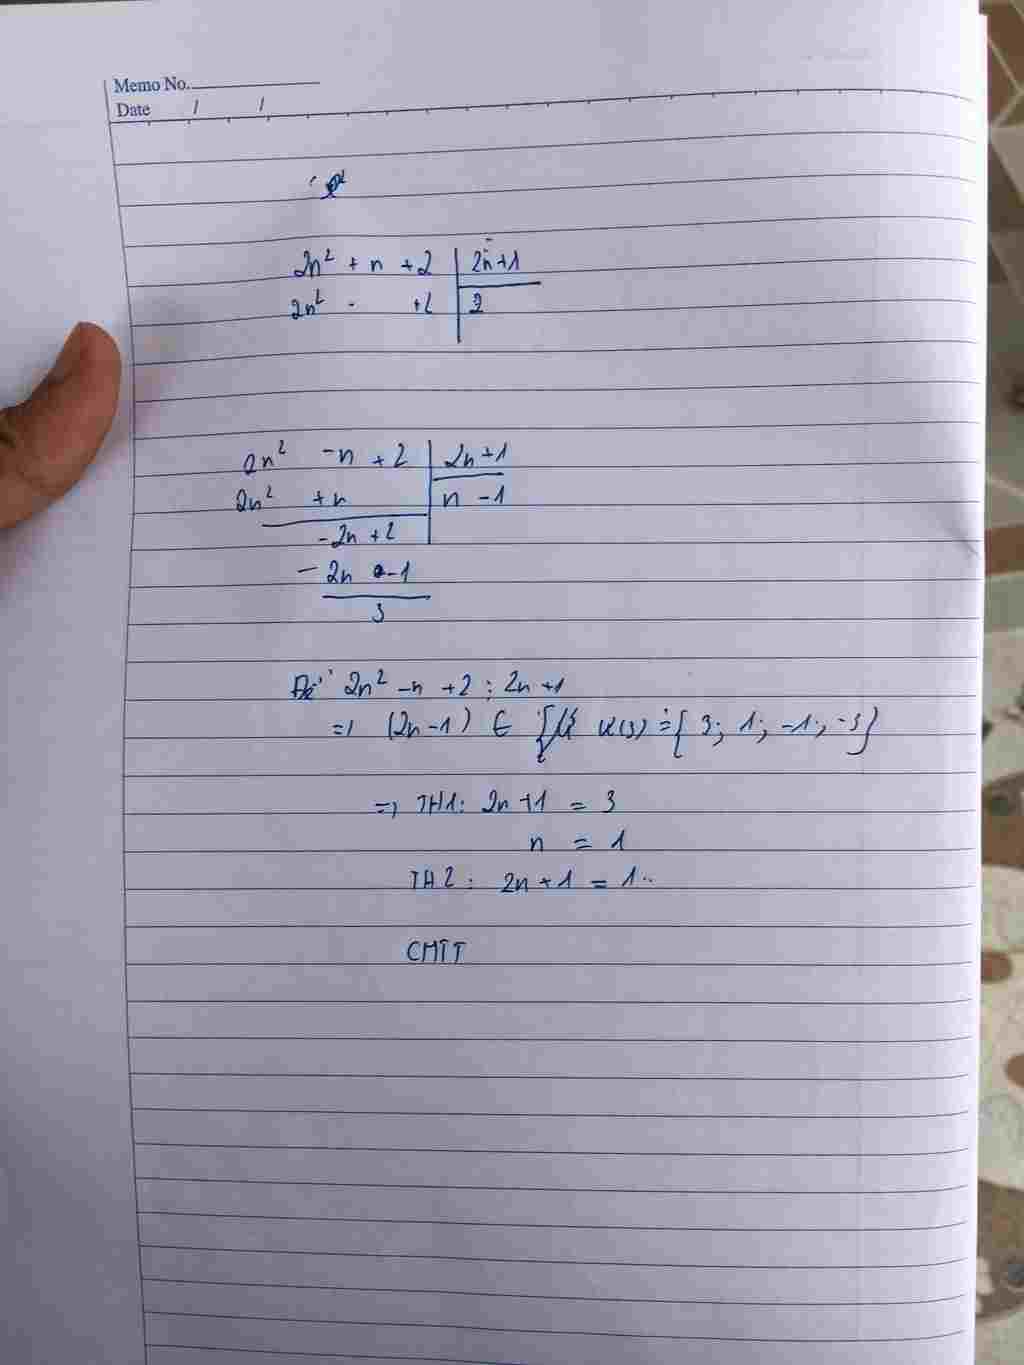 Memo No.
Date / /
2n² + n + 2 | 2n+1
2n² - +2 | 2
2n² -n + 2 | 2n+1
2n² +n | n -1
-2n +2
- 2n -1
3
Để 2n² -n +2 ⋮ 2n+1
=> (2n-1) ∈ Ư(3) = { 3; 1; -1; -3}
=> TH1: 2n +1 = 3
n = 1
TH2: 2n + 1 = 1..
CMTT